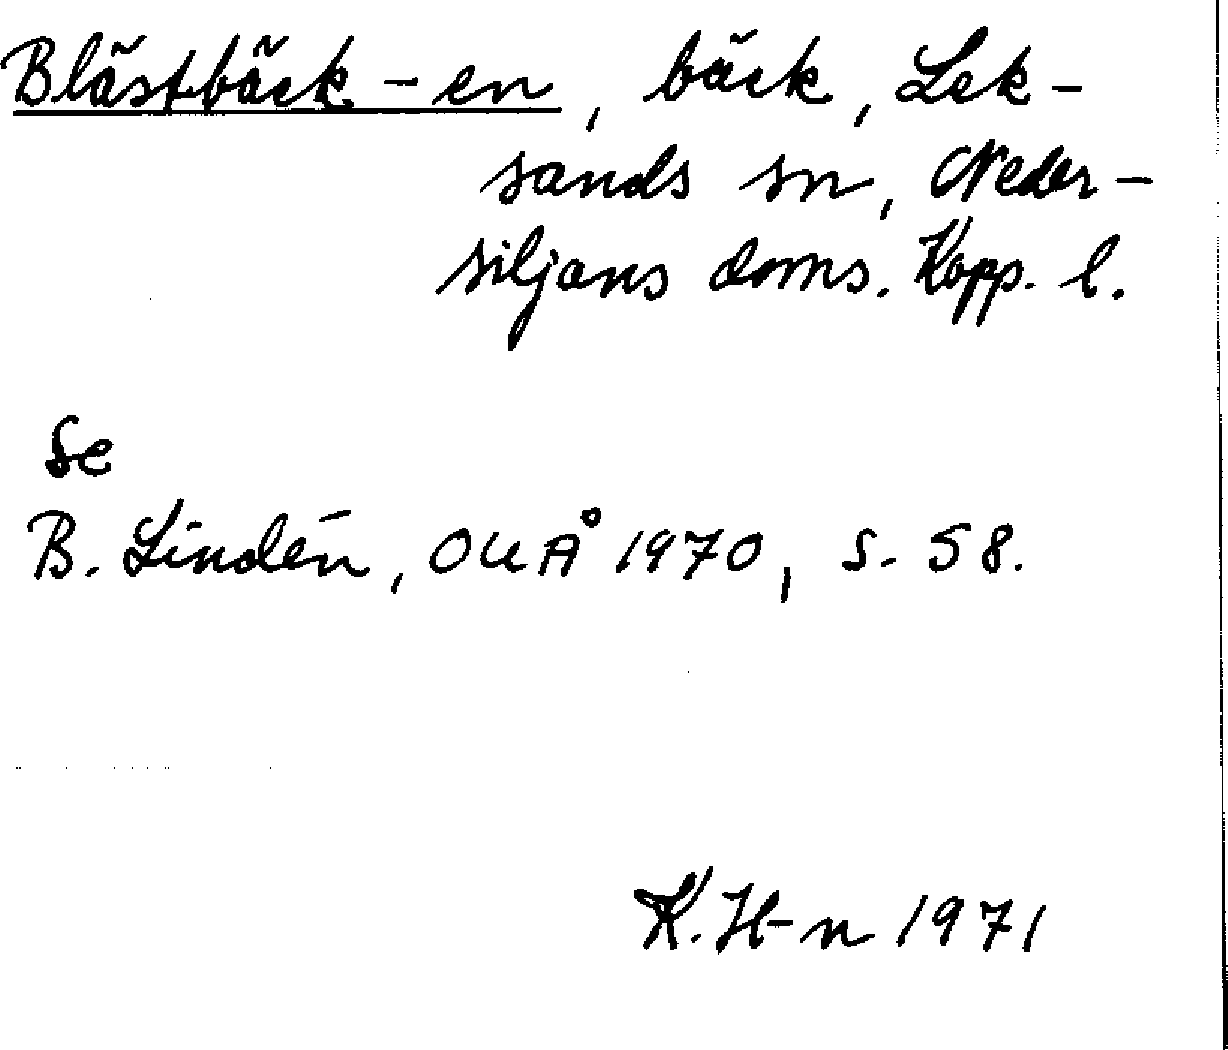 Blästbäck-en, bäck, Lek-
sands sn, Neder-
siljans doms. Kopp. l.
Se
B. Lindén, OUÅ 1970, s. 58.
K. H-n 1971